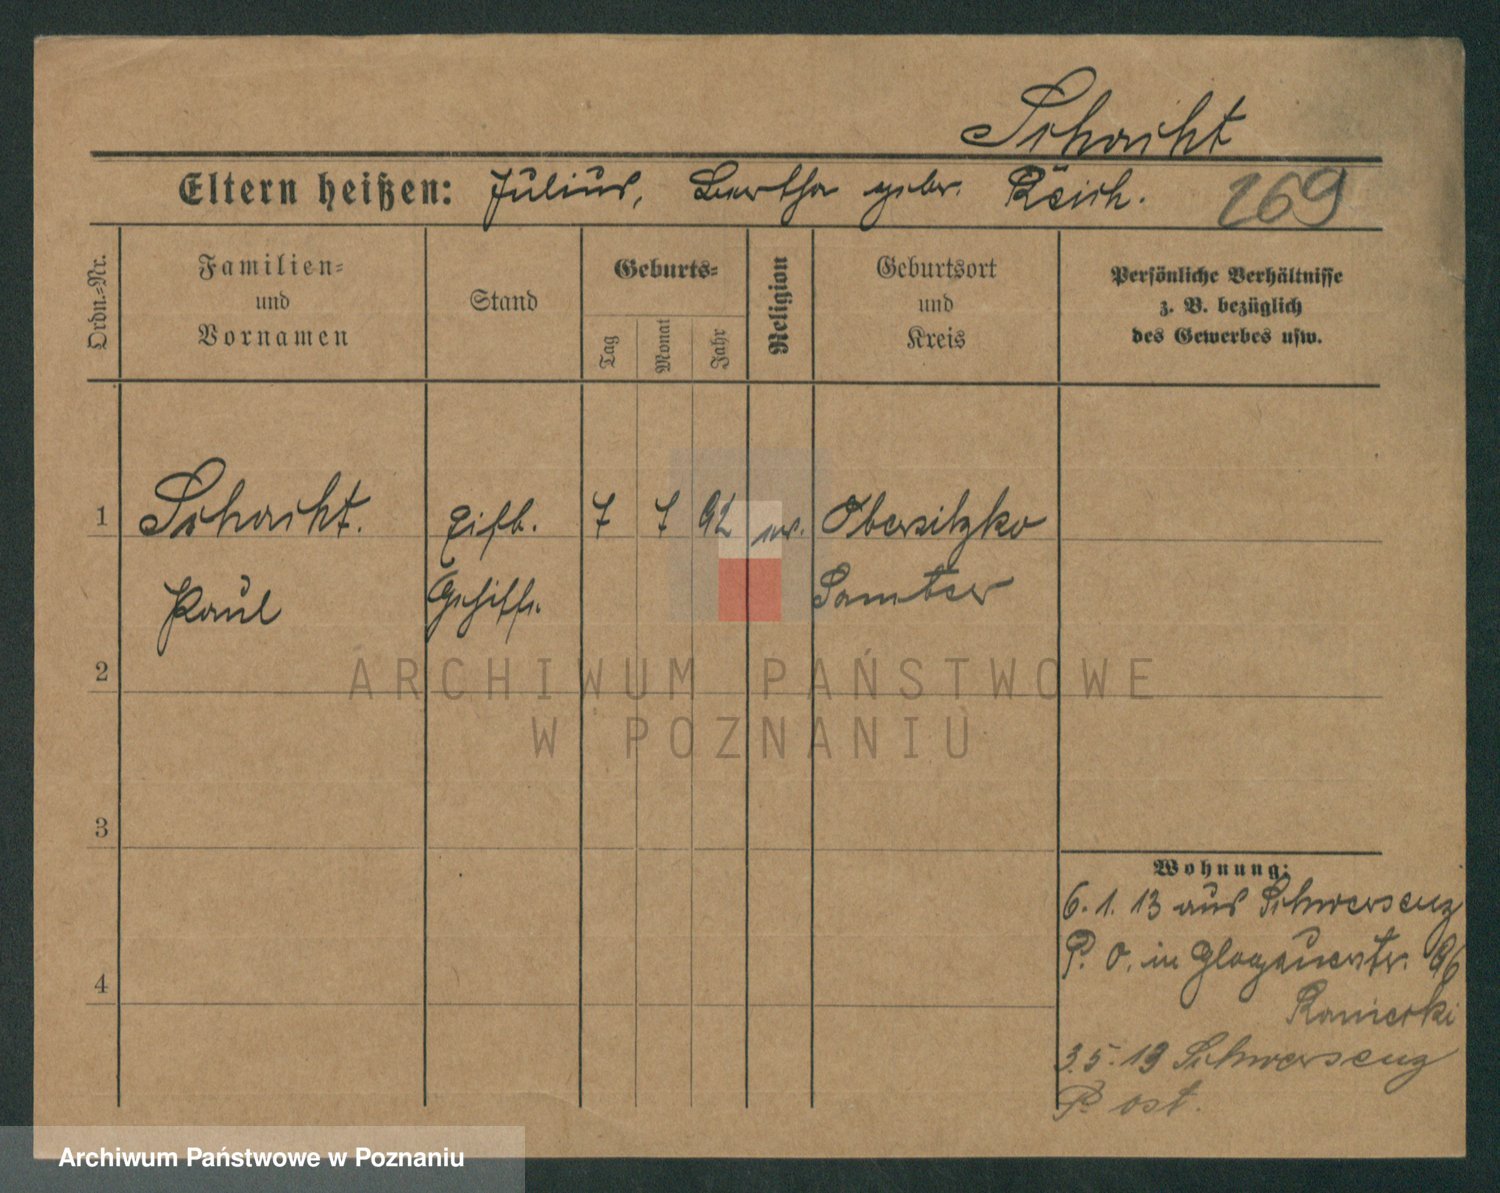 Schacht
Eltern heißen: Julius, Bertha gebr. Reich.
169
Ordn.-Nr.
Familien-
und
Vornamen
Stand
Geburts-
Tag
Monat
Jahr
Religion
Geburtsort
und
Kreis
Persönliche Verhältnisse
z. B. bezüglich
des Gewerbes usw.
1
Schacht.
7
7
92
Obersitzko
Paul
Samter
2
ARCHIWUM PAŃSTWOWE
W POZNANIU
3
4
Wohnung:
6.1.13 aus Schwersenz
P. O. in Glogauerstr. 96
3.5.13 Schwersenz
P. ost.
Archiwum Państwowe w Poznaniu